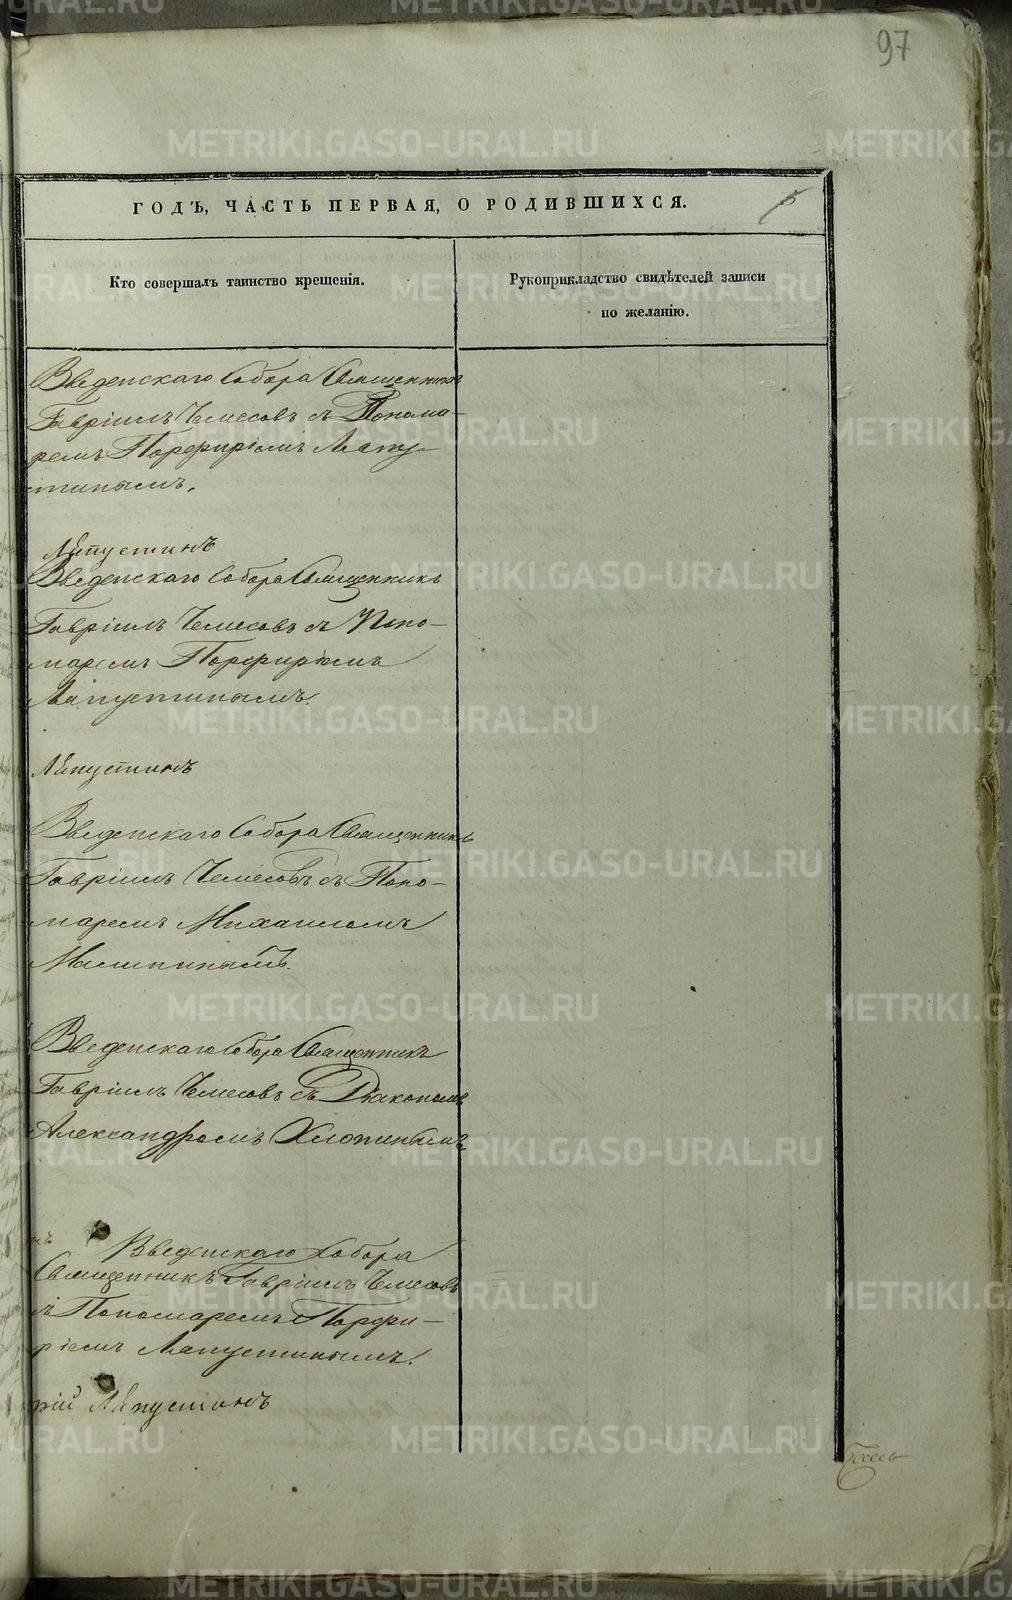 97
ГОДЪ, ЧАСТЬ ПЕРВАЯ, О РОДИВШИХСЯ.
Кто совершалъ таинство крещенія.
Рукоприкладство свидѣтелей записи
по желанію.
Введенскаго Собора Священникъ
Гавріилъ Чемесовъ съ Понома-
ремъ Порфиріемъ Лапу-
стинымъ.
Лапустинъ
Введенскаго Собора Священникъ
Гавріилъ Чемесовъ съ Поно-
маремъ Порфиріемъ
Лапустинымъ.
Лапустинъ
Введенскаго Собора Священникъ
Гавріилъ Чемесовъ съ Поно-
маремъ Михаиломъ
Малининымъ.
Введенскаго Собора Священникъ
Гавріилъ Чемесовъ съ Діакономъ
Александромъ Хлопинымъ
Введенскаго Собора
Священникъ Гавріилъ Чемесовъ
съ Пономаремъ Порфи-
ріемъ Лапустинымъ.
рій Лапустинъ
METRIKI.GASO-URAL.RU